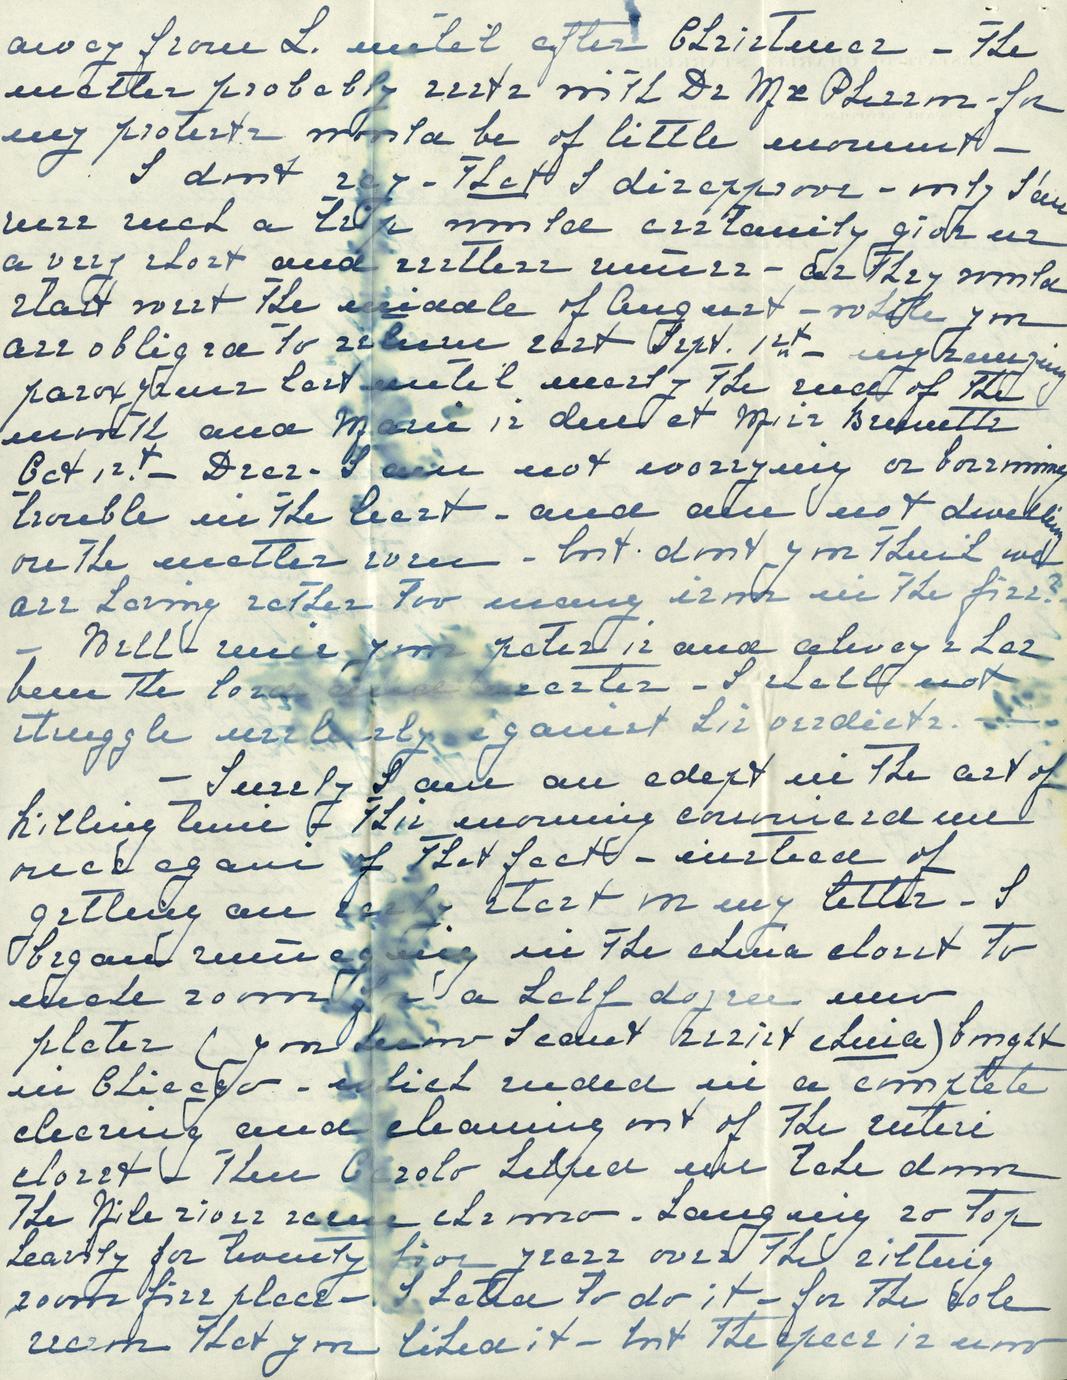 away from L. until after Christmas - The
matter probably rests with Dr McPherson - for
my protests would be of little moment -
I dont say - that I disapprove - only I am
sure such a trip would certainly give us
a very short and restless summer - as They would
start west the middle of August - while you
are obliged to return east Sept. 1st - my
paroxysms last until nearly the end of the
month and Marie is due at Miss Bennetts
Oct 1st - Dear - I am not worrying or borrowing
trouble in the least - and am not dwelling
on the matter even - but dont you think we
are having rather too many irons in the fire?
- Well - since your pater is and always has
been the lord and master - I shall not
struggle uselessly against his verdicts. -
- Surely I am an adept in the art of
killing time - This morning convinced me
once again of That fact - instead of
getting an early start on my letter - I
began rummaging in the china closet to
make room for a half dozen new
plates (you know I cant resist china) bought
in Chicago - which ended in a complete
clearing and cleaning out of the entire
closet - Then Carolo helped me take down
The Nile river scene chromo - hanging so top
heavily for twenty five years over the sitting
room fire place - I hated to do it - for the sole
reason that you liked it - but the space is now